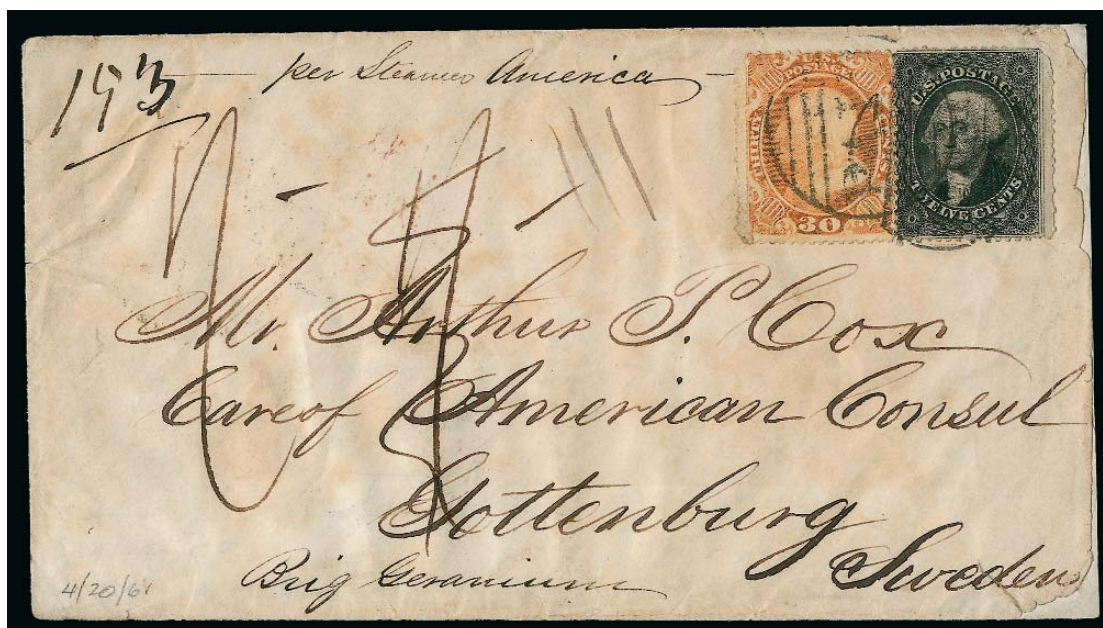 per Steamer America
U.S. POSTAGE
THIRTY CENTS
30
U.S. POSTAGE
TWELVE CENTS
Mr. Arthur P. Cox
Care of American Consul
Gottenburg
Sweden
Brig Geranium
4/20/61